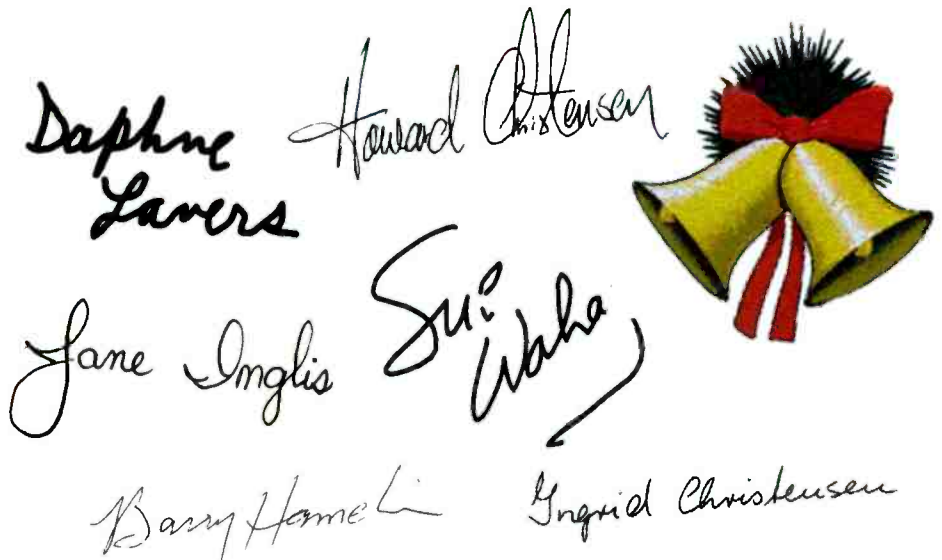 Daphne
Lavers
Howard Christensen
Jane Inglis
Barry
Ingrid Christensen